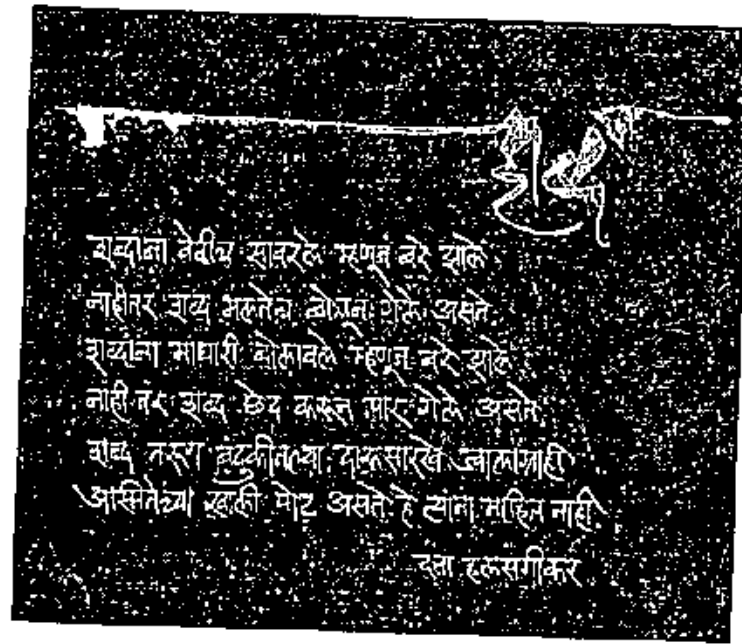 शब्द
शब्दांना वेळीच सावरले म्हणून बरे झाले
नाहीतर शब्द भलतेच बोलून गेले असते
शब्दांना माघारी बोलावले म्हणून बरे झाले
नाहीतर शब्द छेद करून पार गेले असते
शब्द नसते बंदुकीतल्या दारूसारखे ज्वालाग्राही
अस्मितेच्या खाली पोट असते हे त्यांना माहित नाही.
दत्ता हलसगीकर